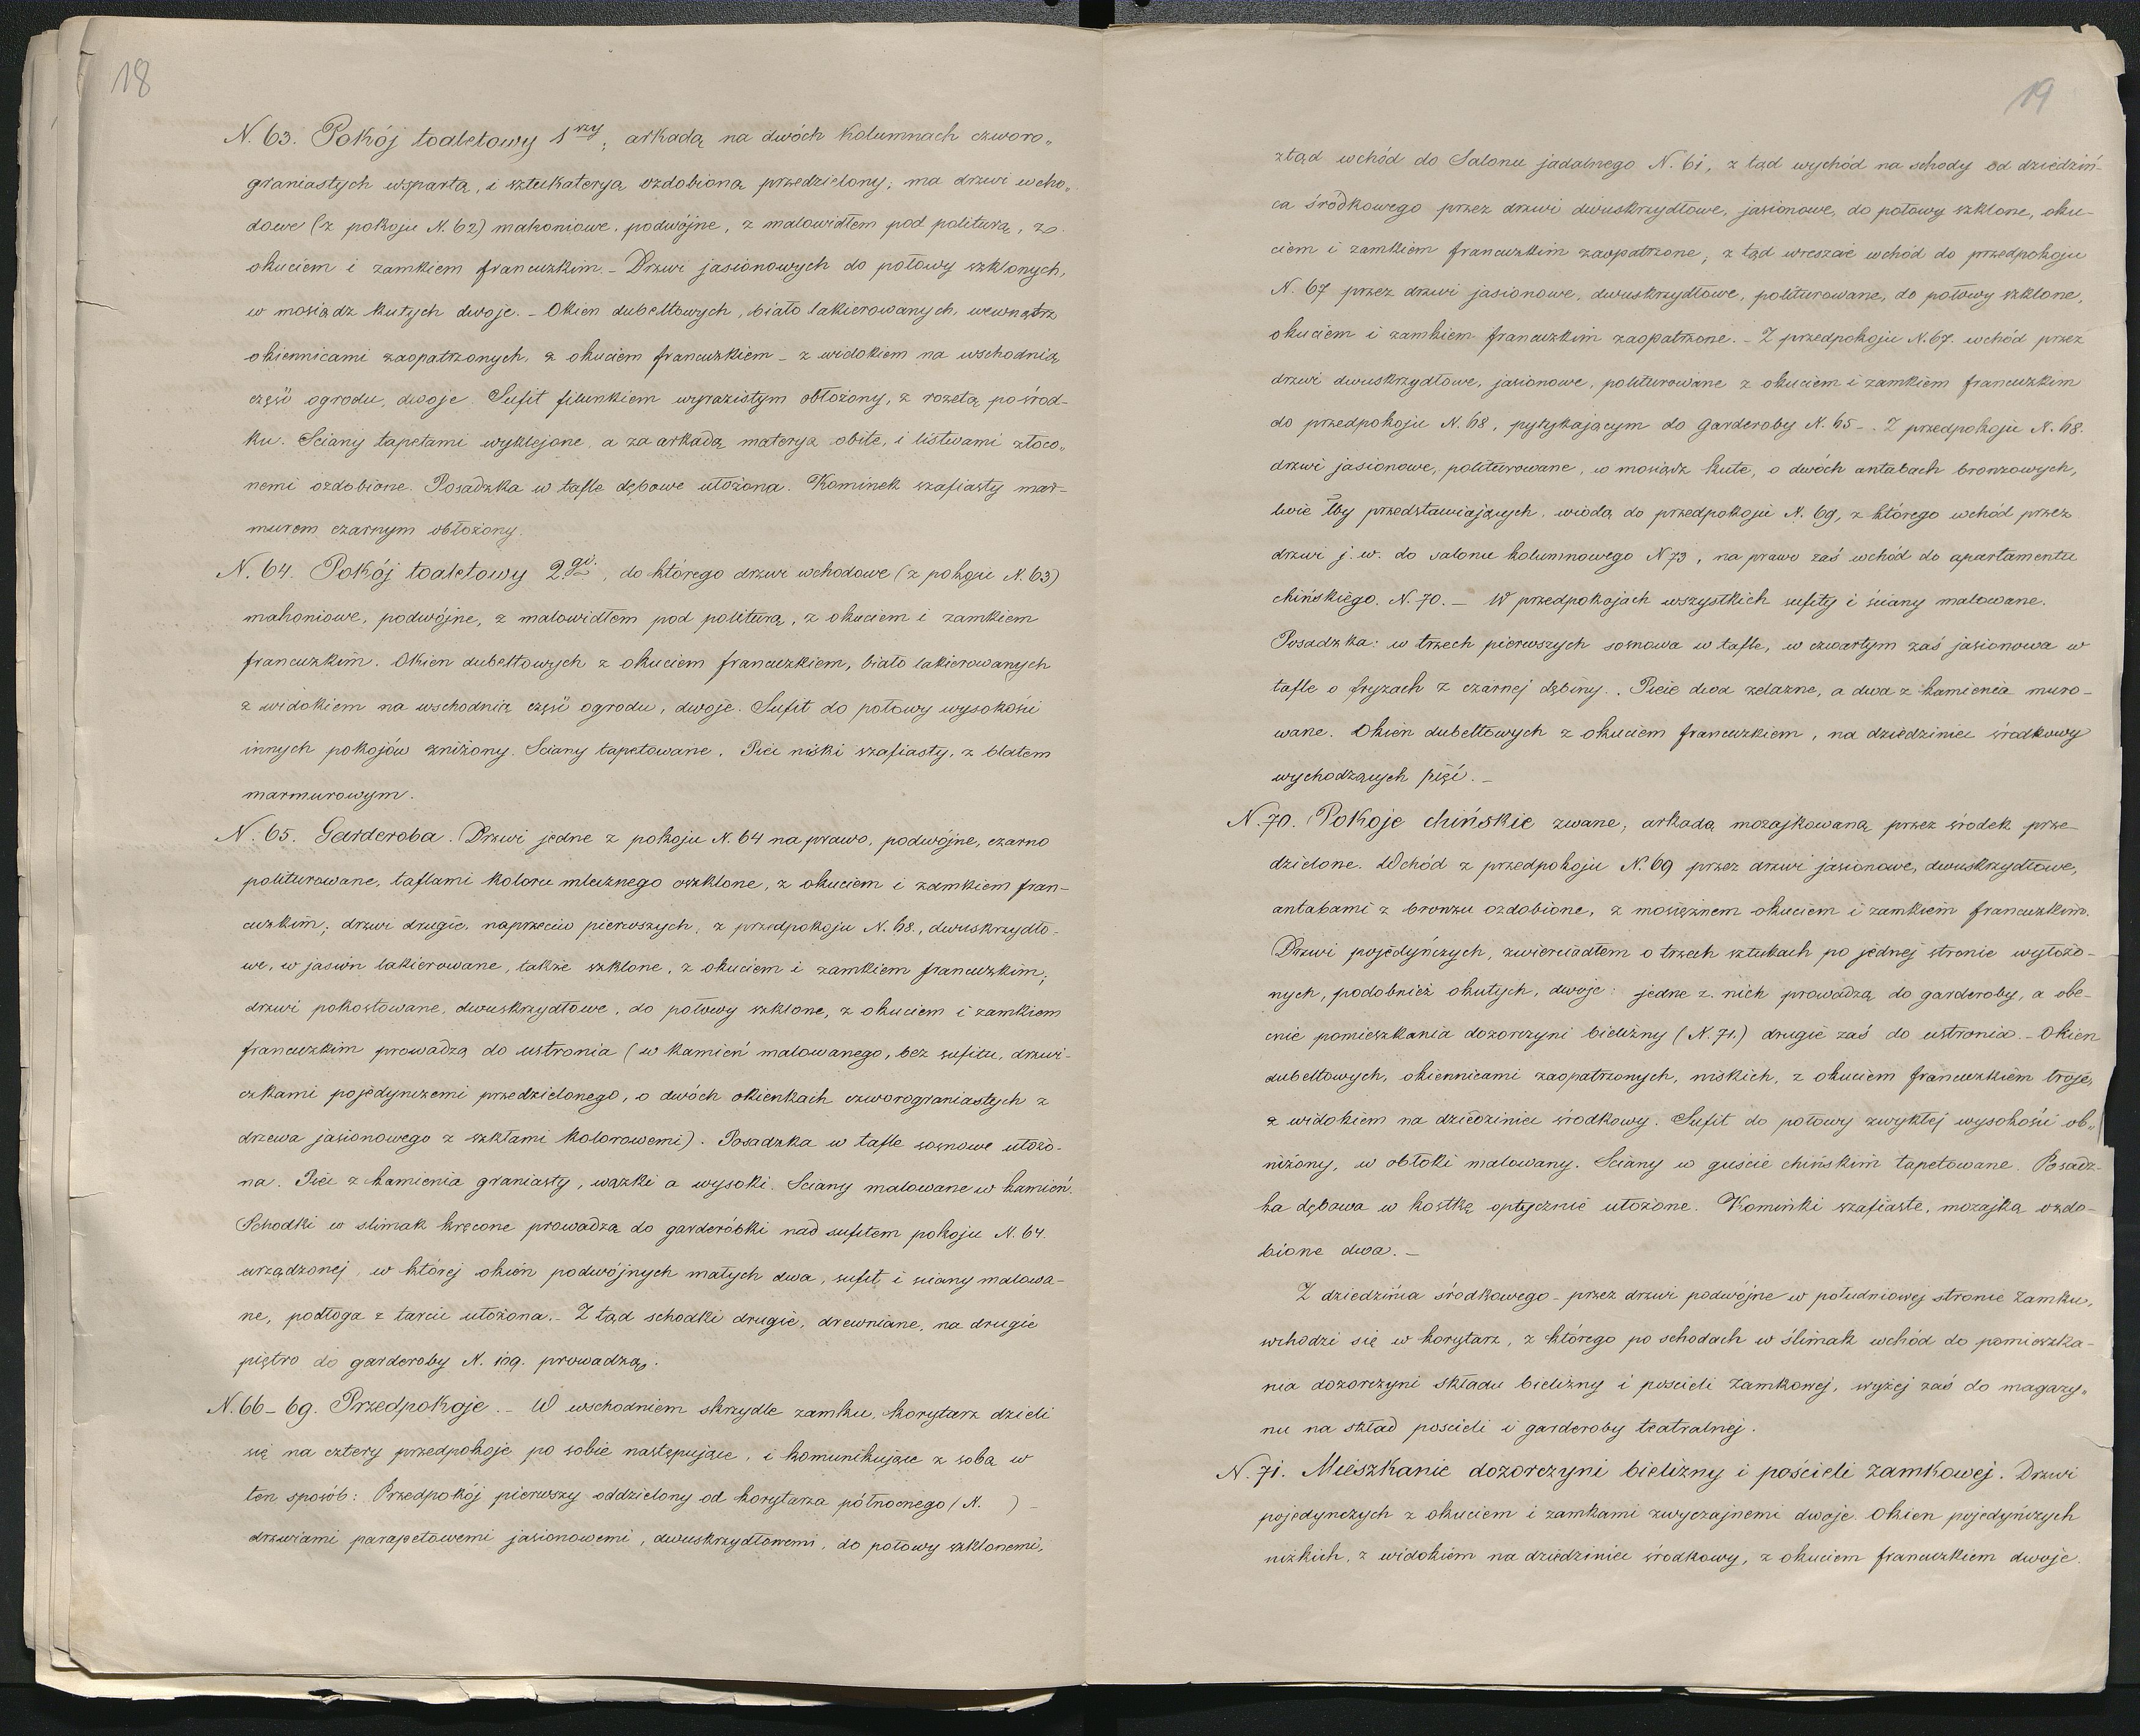 18
N. 63. Pokój toaletowy 1wszy, arkadą na dwóch kolumnach czworo„
graniastych wspartą, i sztukateryą ozdobioną przedzielony; ma drzwi wcho„
dowe (z pokoju N. 62) mahoniowe, podwójne, z malowidłem pod politurą, z
okuciem i zamkiem francuzkim. – Drzwi jasionowych do połowy szklonych,
w mosiądz kutych dwoje. – Okien dubeltowych, biało lakierowanych, wewnątrz
okiennicami zaopatrzonych, z okuciem francuzkiem – z widokiem na wschodnią
część ogrodu, dwoje. Sufit filunkiem wyrazistym obłożony, z rozetą pośrod-
ku. Sciany tapetami wyklejone, a za arkadą materyą obite, i listwami złoco„
nemi ozdobione. Posadzka w tafle dębowe ułożona. Kominek szafiasty mar-
murem czarnym obłożony.
N. 64. Pokój toaletowy 2gi, do którego drzwi wchodowe (z pokoju N. 63)
mahoniowe, podwójne, z malowidłem pod politurą, z okuciem i zamkiem
francuzkim. Okien dubeltowych z okuciem francuzkiem, biało lakierowanych
z widokiem na wschodnią część ogrodu, dwoje. Sufit do połowy wysokości
innych pokojów zniżony. Sciany tapetowane. Piec niski szafiasty, z blatem
marmurowym.
N. 65. Garderoba. Drzwi jedne z pokoju N. 64 na prawo, podwójne, czarno
politurowane, taflami koloru mlecznego oszklone, z okuciem i zamkiem fran-
cuzkim; drzwi drugie, naprzeciw pierwszych, z przedpokoju N. 68., dwuskrzydło-
we, w jasion lakierowane, także szklone, z okuciem i zamkiem francuzkim;
drzwi pokostowane, dwuskrzydłowe, do połowy szklone, z okuciem i zamkiem
francuzkim prowadzą do ustronia (w kamień malowanego, bez sufitu, drzwi-
czkami pojedynczemi przedzielonego, o dwóch okienkach czworograniastych z
drzewa jasionowego z szkłami kolorowemi). Posadzka w tafle sosnowe ułożo-
na. Piec z kamienia graniasty, wązki a wysoki. Sciany malowane w kamień.
Schodki w slimak kręcone prowadzą do garderóbki nad sufitem pokoju N. 64.
urządzonej, w której okien podwójnych małych dwa, sufit i sciany malowa-
ne, podłoga z tarcic ułożona. – Z tąd schodki drugie, drewniane, na drugie
piętro do garderoby N. 119. prowadzą.
N. 66 – 69. Przedpokoje. – W wschodniem skrzydle zamku, korytarz dzieli
się na cztery przedpokoje po sobie następujące, i komunikujące z sobą w
ten sposób: Przedpokój pierwszy oddzielony od korytarza północnego (N. ) –
drzwiami parapetowemi jasionowemi, dwuskrzydłowemi, do połowy szklonemi,
19
ztąd wchód do Salonu jadalnego N. 61, z tąd wychód na schody od dziedziń-
ca środkowego przez drzwi dwuskrzydłowe, jasionowe, do połowy szklone, oku-
ciem i zamkiem francuzkim zaopatrzone, z tąd wreszcie wchód do przedpokoju
N. 67 przez drzwi jasionowe, dwuskrzydłowe, politurowane, do połowy szklone,
okuciem i zamkiem francuzkim zaopatrzone. – Z przedpokoju N. 67. wchód przez
drzwi dwuskrzydłowe, jasionowe, politurowane z okuciem i zamkiem francuzkim
do przedpokoju N. 68, pytykającym do garderoby N. 65 –. Z przedpokoju N. 68.
drzwi jasionowe, politurowane, w mosiądz kute, o dwóch antabach bronzowych,
lwie łby przedstawiających, wiodą do przedpokoju N. 69, z którego wchód przez
drzwi j. w. do salonu kolumnowego N 73, na prawo zaś wchód do apartamentu
chińskiego. N. 70. – W przedpokojach wszystkich sufity i ściany malowane.
Posadzka: w trzech pierwszych sosnowa w tafle, w czwartym zaś jasionowa w
tafle o fryzach z czarnej dębiny. Piece dwa żelazne, a dwa z kamienia muro-
wane. Okien dubeltowych z okuciem francuzkiem, na dziedziniec środkowy
wychodzących pięć. –
N. 70. Pokoje chińskie zwane, arkadą mozajkowaną przez środek prze-
dzielone. Wchód z przedpokoju N. 69 przez drzwi jasionowe, dwuskrzydłowe,
antabami z bronzu ozdobione, z mosiężnem okuciem i zamkiem francuzkim.
Drzwi pojedyńczych, zwierciadłem o trzech sztukach po jednej stronie wyłożo-
nych, podobnież okutych, dwoje: jedne z nich prowadzą do garderoby, a obe-
cnie pomieszkania dozorczyni bielizny (N. 71.) drugie zaś do ustronia. – Okien
dubeltowych, okiennicami zaopatrzonych, niskich, z okuciem francuzkiem troje,
z widokiem na dziedziniec środkowy. Sufit do połowy zwykłej wysokości ob„
niżony, w obłoki malowany. Sciany w guście chińskim tapetowane. Posadz-
ka dębowa w kostkę optycznie ułożone. Kominki szafiaste, mozajką ozdo-
bione dwa. –
Z dziedzińca środkowego – przez drzwi podwójne w południowej stronie Zamku,
wchodzi się w korytarz, z którego po schodach w ślimak wchód do pomieszka-
nia dozorczyni składu bielizny i poscieli Zamkowej, wyżej zaś do magazy„
nu na skład poscieli i garderoby teatralnej.
N. 71. Mieszkanie dozorczyni bielizny i pościeli zamkowej. Drzwi
pojedynczych z okuciem i zamkami zwyczajnemi dwoje. Okien pojedyńczych
nizkich, z widokiem na dziedziniec środkowy, z okuciem francuzkiem dwoje.